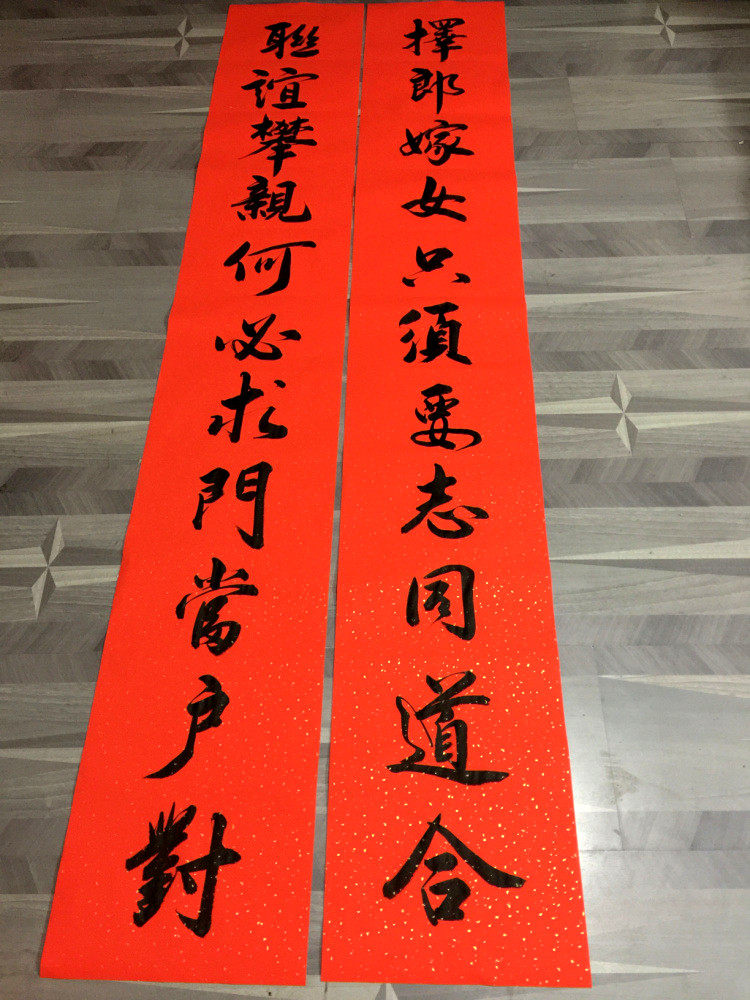 擇郎嫁女只須要志同道合
聯誼攀親何必求門當户對